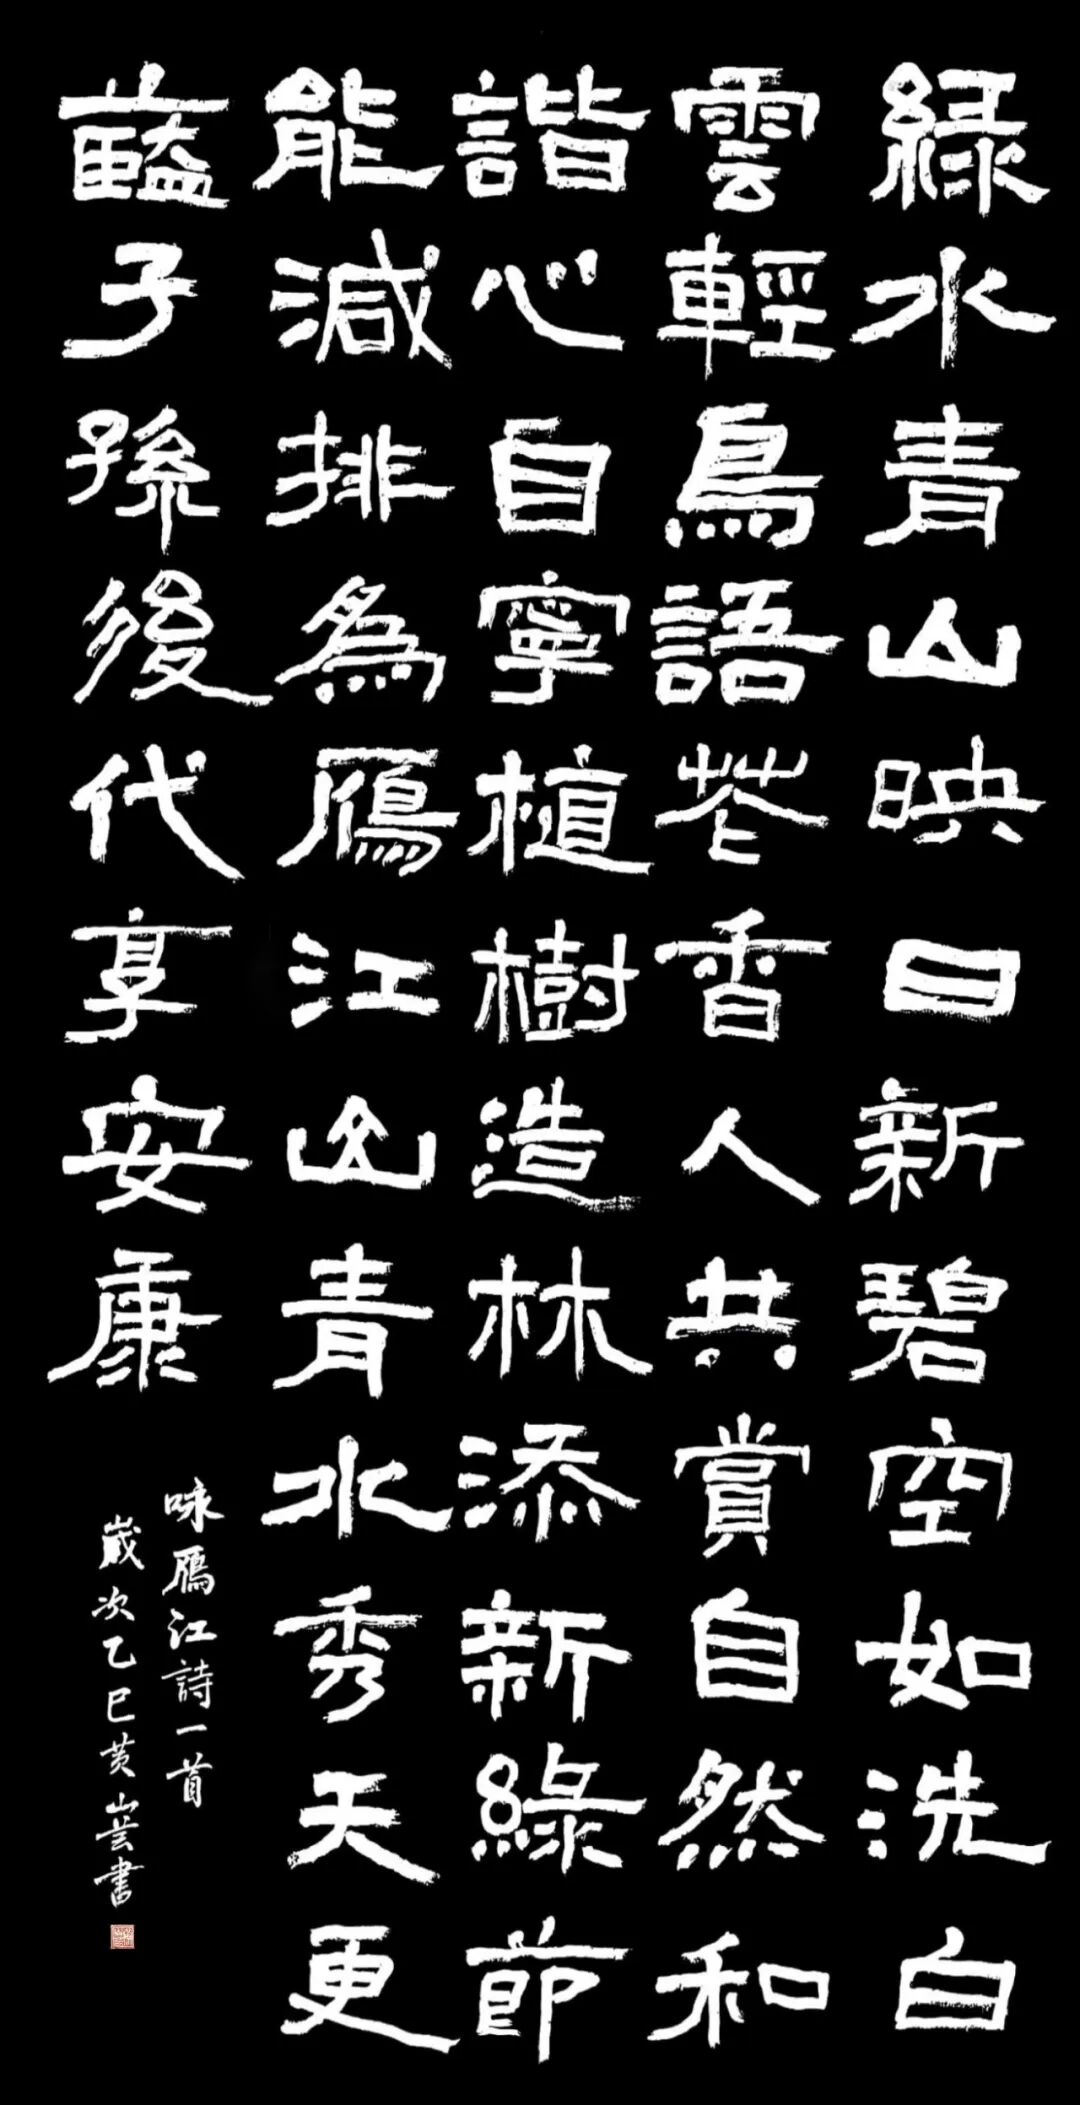 綠水青山映日新碧空如洗白
雲輕鳥語花香人共賞自然和
諧心自寧植樹造林添新綠節
能減排為鴈江山青水秀天更
藍子孫後代享安康
咏鴈江詩一首
歲次乙巳黄書